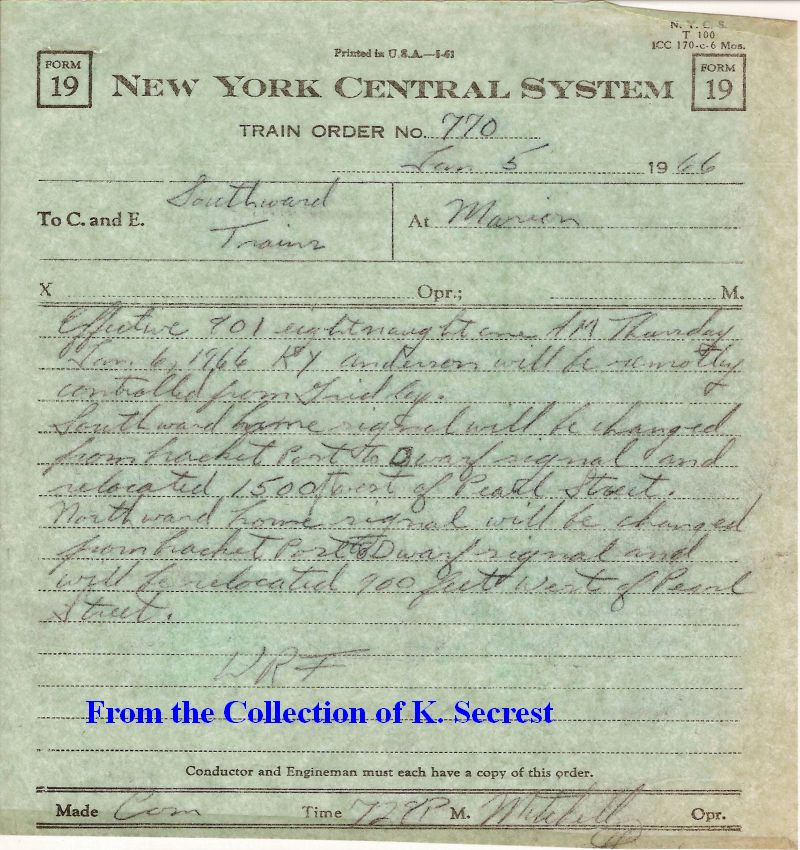 N. Y. C. S.
T 100
ICC 170-c-6 Mos.
Printed in U.S.A.—5-63
FORM 19
NEW YORK CENTRAL SYSTEM
FORM 19
TRAIN ORDER NO. 770
Jan 5 1966
To C. and E. Southward Trains
At Marion
X Opr.; M.
Effective 801 eight naught one AM Thursday
Jan. 6, 1966 RY Anderson will be remotly
controlled from Gridley.
Southward home signal will be changed
from bracket Post to Dwarf signal and
relocated 1500 west of Pearl Street.
Northward home signal will be changed
from bracket Post to Dwarf signal and
will be relocated 900 feet West of Pearl
Street.
WRF
From the Collection of K. Secrest
Conductor and Engineman must each have a copy of this order.
Made Com Time 728P M. Mitchell Opr.